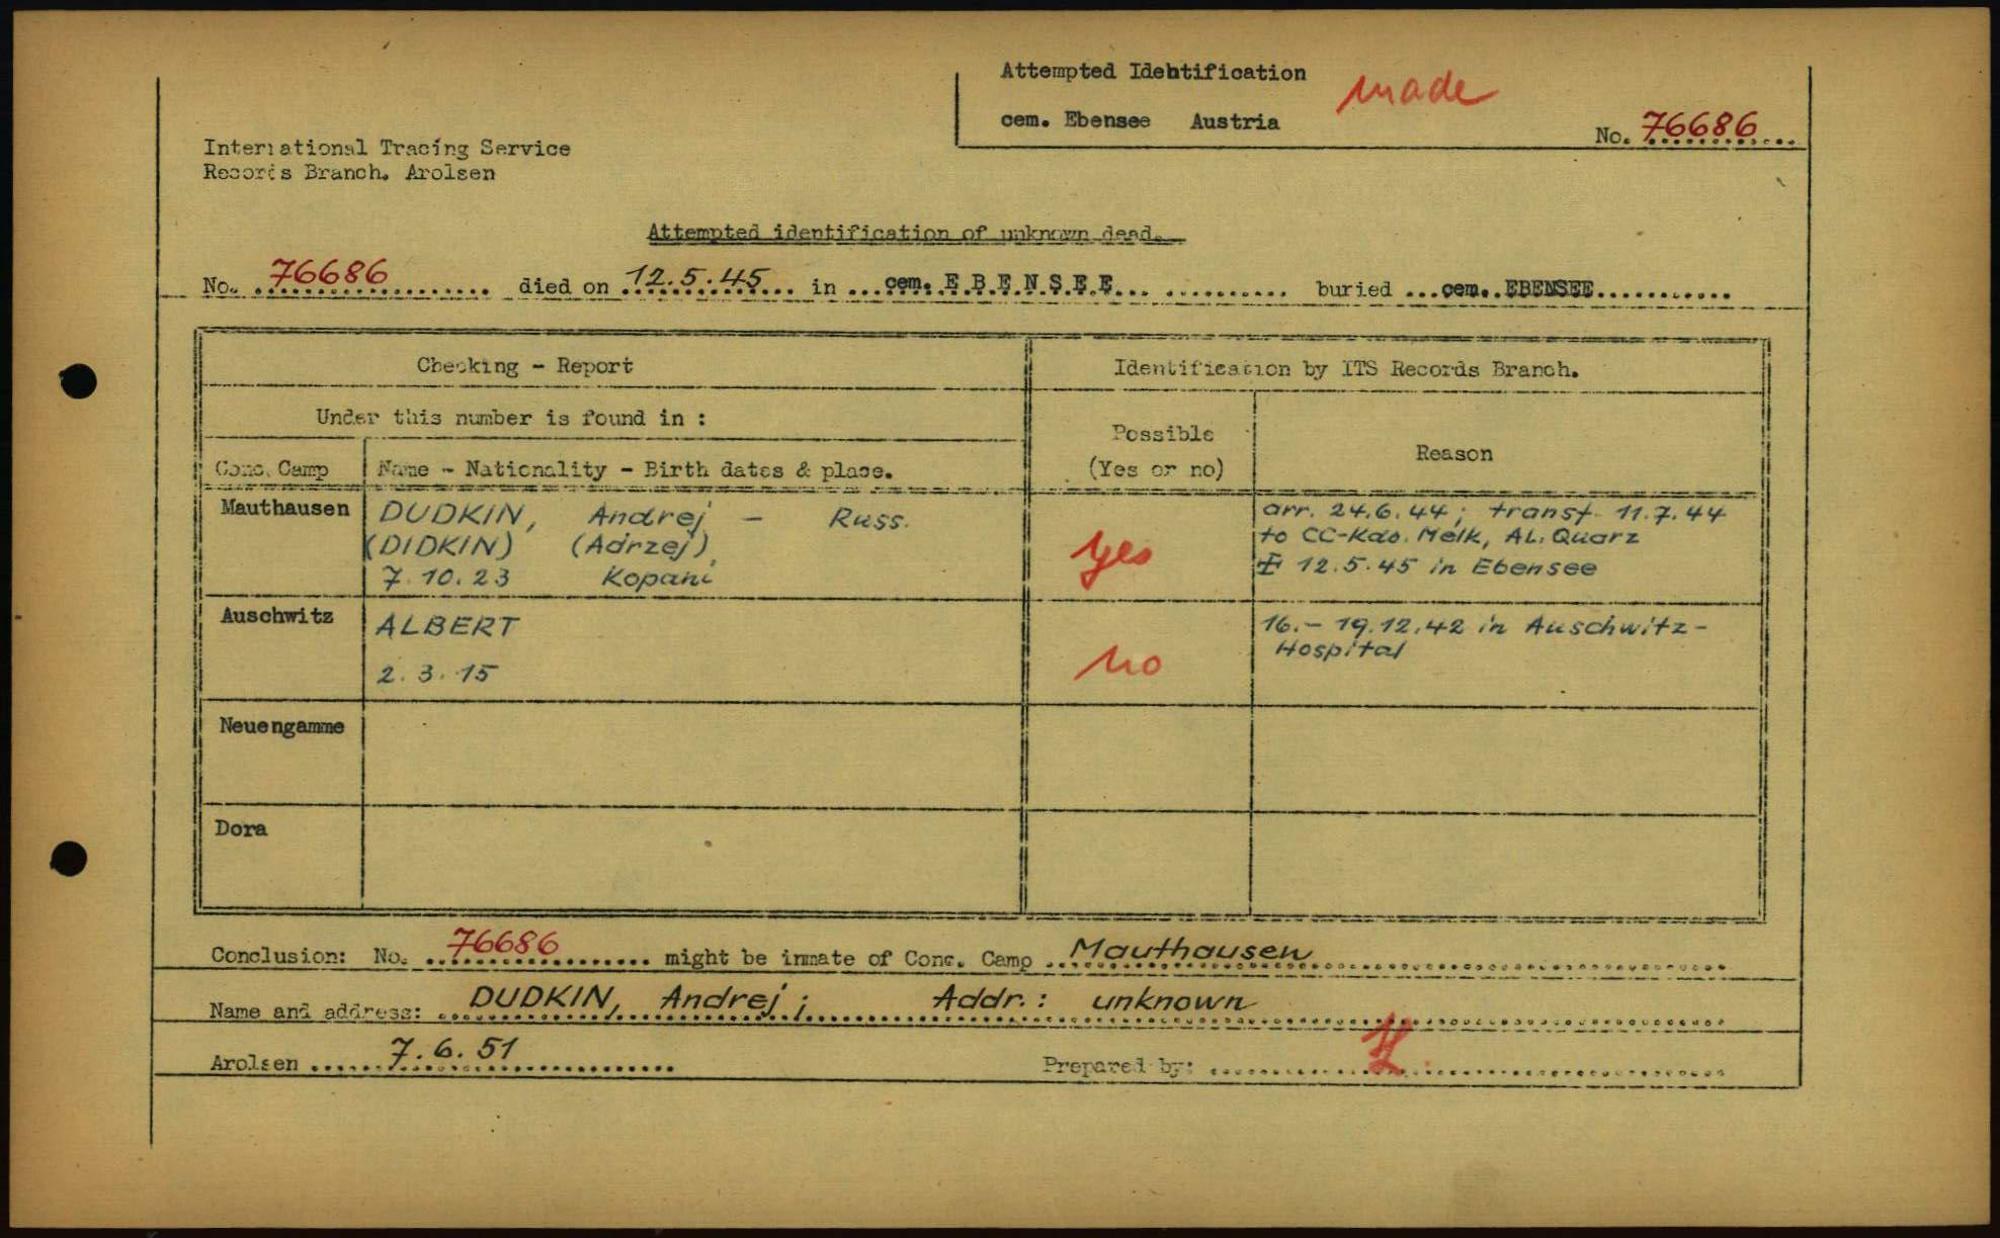 Attempted Identification made
cem. Ebensee Austria
No. 76686
International Tracing Service
Records Branch. Arolsen
Attempted identification of unknown dead.
No. 76686 died on 12.5.45 in cem. EBENSEE buried cem. EBENSEE
Checking - Report
Identification by ITS Records Branch.
Under this number is found in :
Possible
(Yes or no)
Reason
Conc. Camp
Name - Nationality - Birth dates & place.
Mauthausen
DUDKIN, Andrej - Russ.
(DIDKIN) (Adrzej)
7.10.23 Kopani
yes
arr. 24.6.44; transf. 11.7.44
to CC-Kdo. Melk, AL. Quarz
12.5.45 in Ebensee
Auschwitz
ALBERT
2.3.15
no
16.- 19.12.42 in Auschwitz-
Hospital
Neuengamme
Dora
Conclusion: No. 76686 might be inmate of Conc. Camp Mauthausen
Name and address: DUDKIN, Andrej; Addr.: unknown
Arolsen 7.6.51
Prepared by: